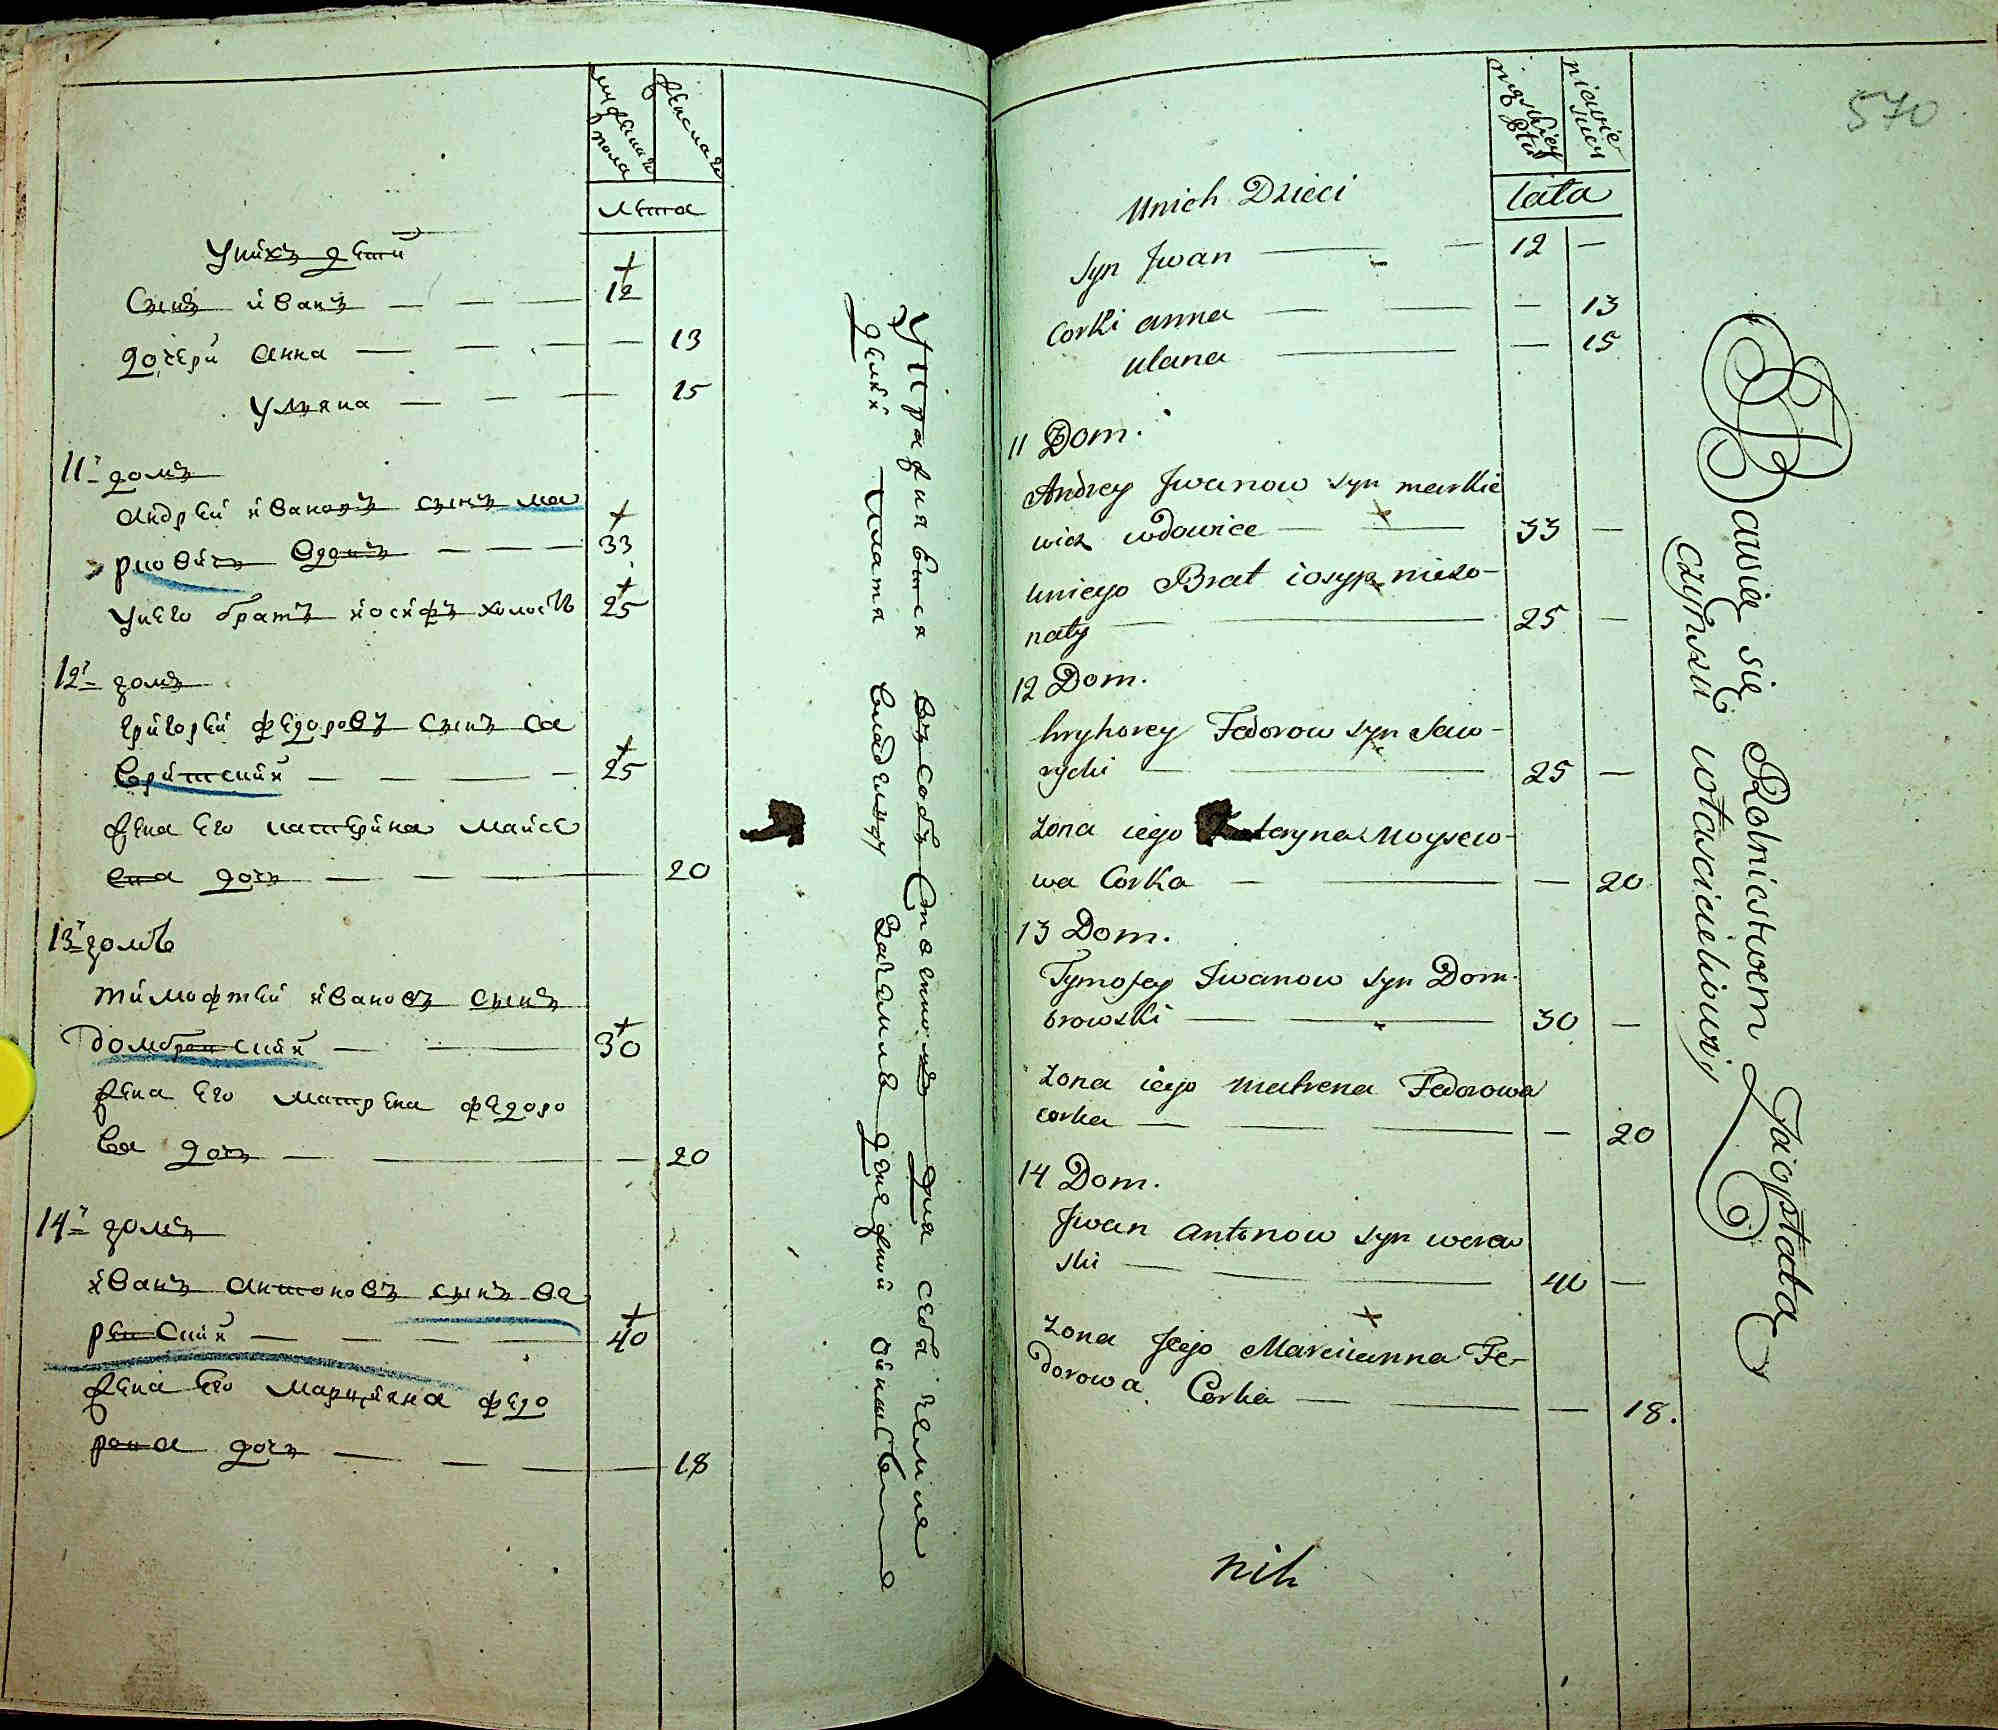 мужеска пола
женска
лѣта
У нихъ дети
Сынъ иванъ — — — 12
дочери анна — — — 13
Ульяна — — — 15
11й домъ
андрей ивановъ сынъ ма
ркевичъ вдовъ — — — 33
У него братъ иосифъ холостъ 25
12й домъ
григорей федоровъ сынъ са
врицкий — — — 25
жена его катерина майсе
ева дочь — — — 20
13й домъ
тимофтей ивановъ сынъ
домбровский — — 30
жена его матрена федоро
ва дочь — — — 20
14й домъ
иванъ антоновъ сынъ ве
ревский — — — 40
жена его марцияна федо
рова дочь — — — 18
Упражняется въ собственномъ для себя земле
делии платя владельцу
męskiey płci
niewie
lata
U nich Dzieci
syn Jwan — — 12 —
Corki anna — — — 13
ulana — — 15
11 Dom.
Andrey Jwanow syn markie
wicz wdowiec — — 33 —
u niego Brat iosyp nieżo-
naty — — 25 —
12 Dom.
hryhorey Fedorow syn Saw-
rycki — — 25 —
żona iego Kateryna Moysew-
wa Corka — — — 20
13 Dom.
Tymofey Jwanow syn Dom-
browski — — 30 —
żona iego matrena Fedorowa
corka — — — 20
14 Dom.
Jwan antonow syn werew
ski — — 40 —
żona Jego Marcianna Fe-
dorowa Corka — — — 18.
nih
Bawią się Rolnictwem J opłatą
czynszu właścicielowi
570